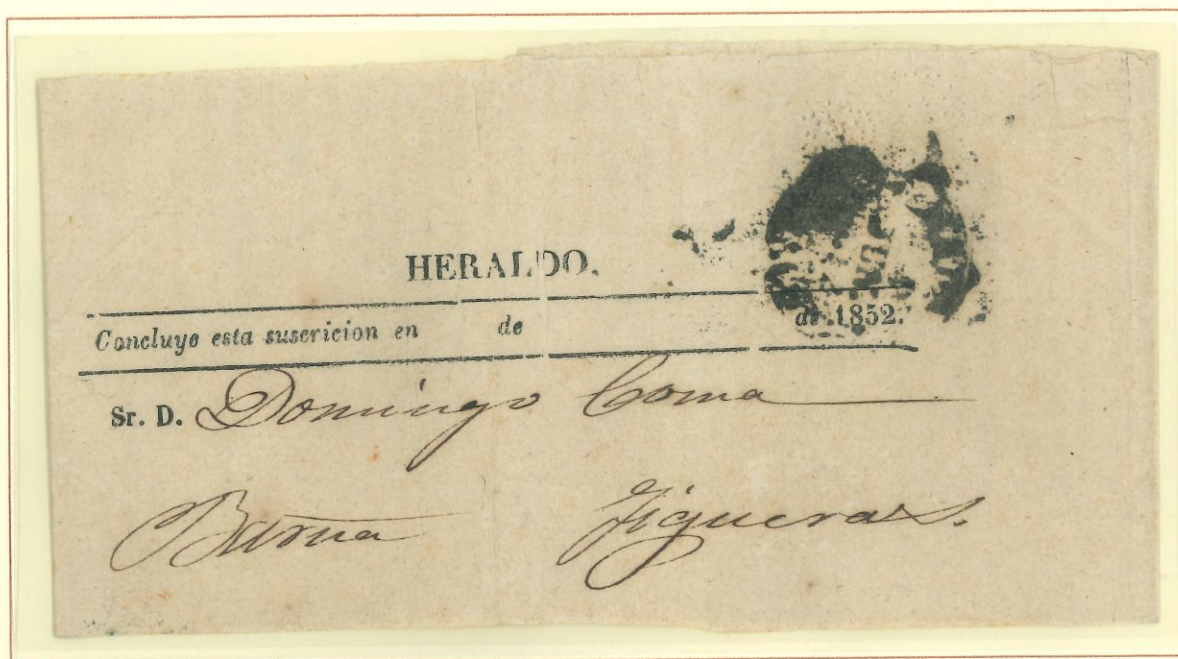 HERALDO.
Concluye esta suscricion en de de 1852.
Sr. D. Domingo Coma
Barna Figueras.